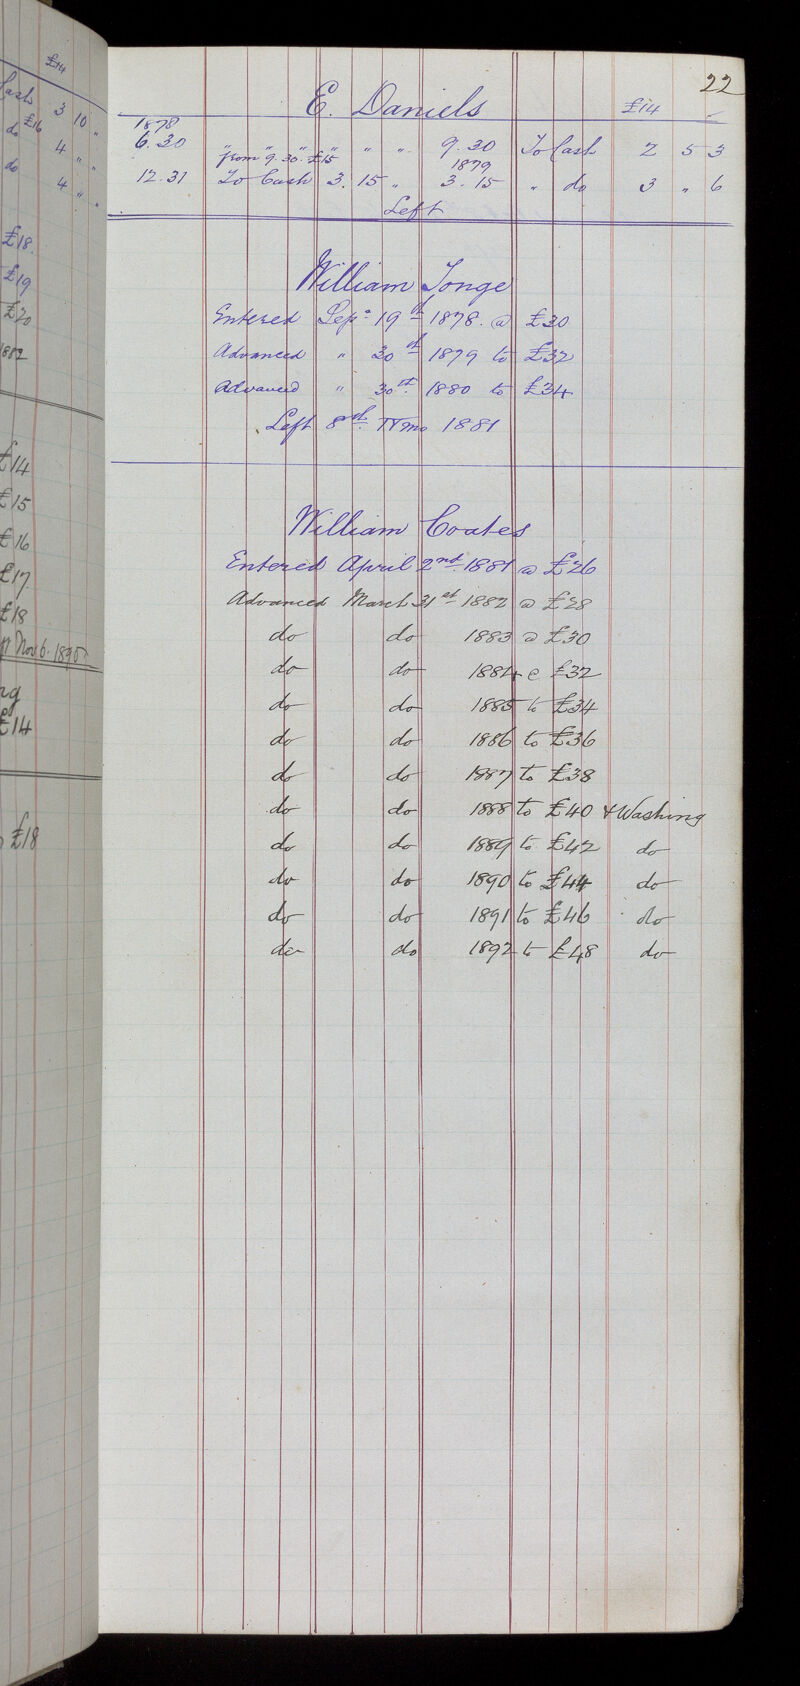 £14
Cash 3 10 "
do £16 4 " "
do 4 " "
£18.
£19
£20
1882
£14
£15
£16
£17
£18
Nov 6. 1895
£14
£18
22
E. Daniels £14
1878
6.30 " " " " " " 9.30 To Cash 2 5 3
from 9.30. £15 1879
12.31 To Cash 3. 15 " 3. 15 " do 3 " 6
Left
William Tonge
Entered Sep. 19th 1878. @ £30
Advanced " 30th 1879 to £32
Advanced " 30th 1880 to £34
Left 8th 11mo 1881
William Coates
Entered April 2nd 1881 @ £26
Advanced March 31st 1882 @ £28
do do 1883 @ £30
do do 1884 @ £32
do do 1885 to £34
do do 1886 to £36
do do 1887 to £38
do do 1888 to £40 & Washing
do do 1889 to £42 do
do do 1890 to £44 do
do do 1891 to £46 do
do do 1892 to £48 do